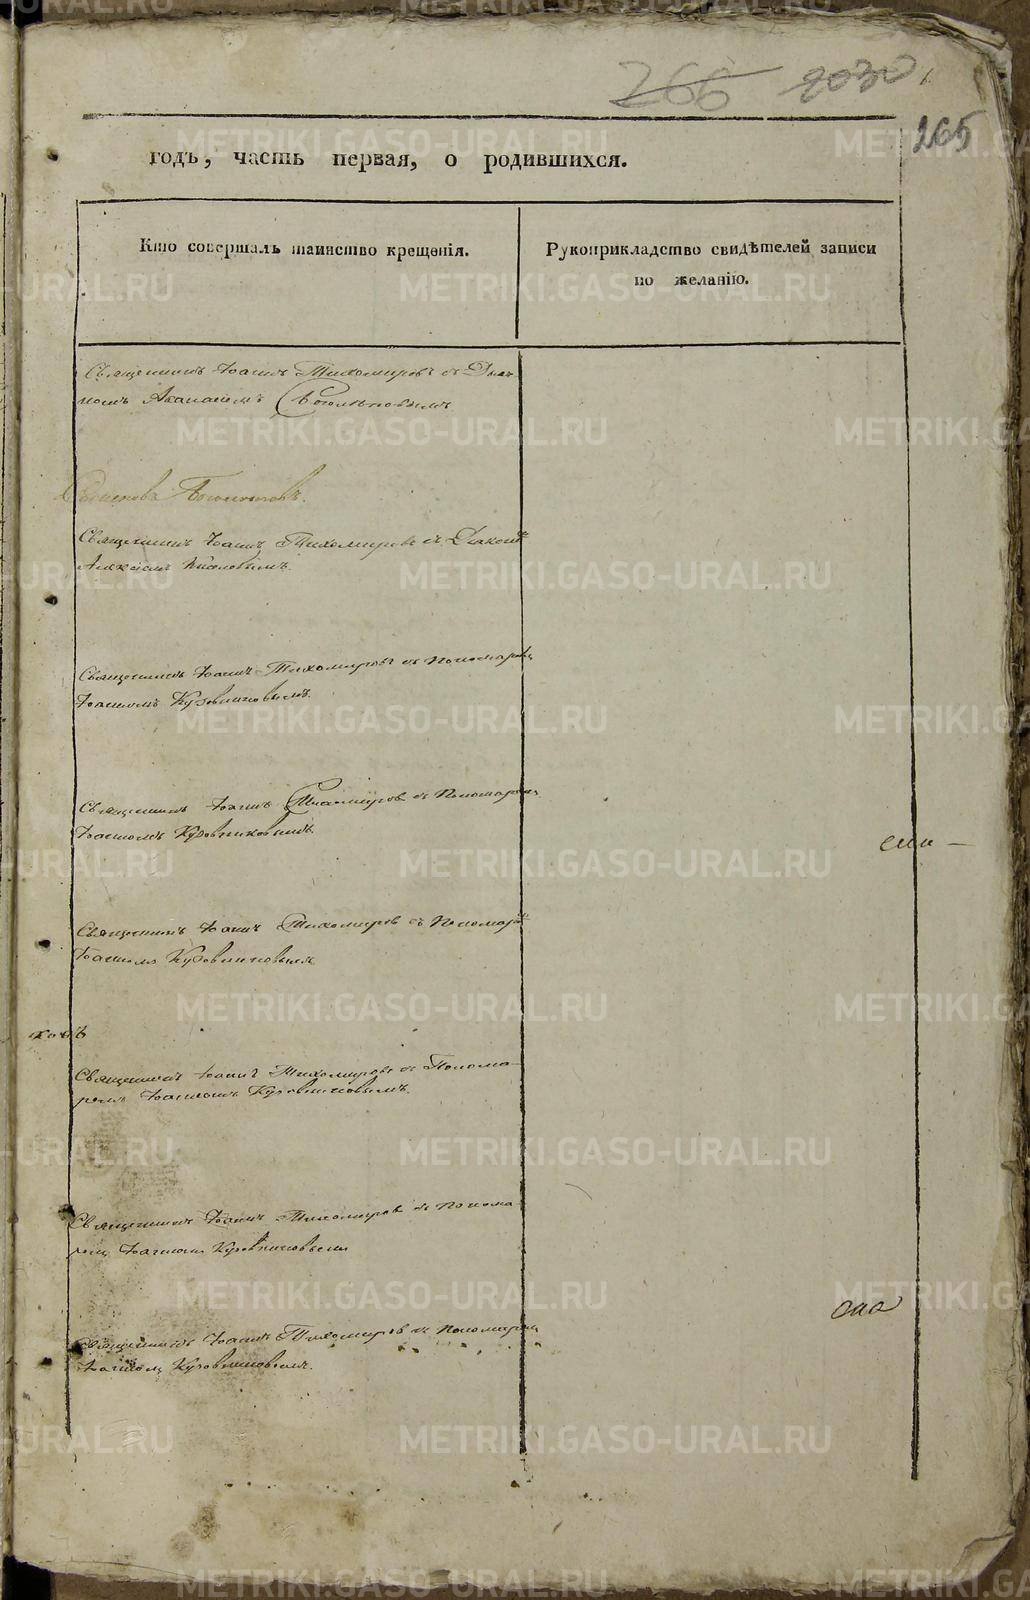 266 2030
265
годъ, часть первая, о родившихся.
Кто совершалъ таинство крещенія.
Рукоприкладство свидѣтелей записи
по желанію.
Священникъ Іоаннъ Тихомировъ съ Дьяч
комъ Аѳанасіемъ
Священникъ Іоаннъ Тихомировъ съ Діакономъ
Алексѣемъ
Священникъ Іоаннъ Тихомировъ съ Пономаремъ
Іоанномъ Кузовниковымъ.
Священникъ Іоаннъ Тихомировъ съ Пономаремъ
Іоанномъ Кузовниковымъ
Священникъ Іоаннъ Тихомировъ съ Пономаремъ
Іоанномъ Кузовниковымъ
Священникъ Іоаннъ Тихомировъ съ Понома-
ремъ Іоанномъ Кузовниковымъ.
Священникъ Іоаннъ Тихомировъ съ Понома
ремъ Іоанномъ Кузовниковымъ
Священникъ Іоаннъ Тихомировъ съ Пономаремъ
Іоанномъ Кузовниковымъ.
METRIKI.GASO-URAL.RU